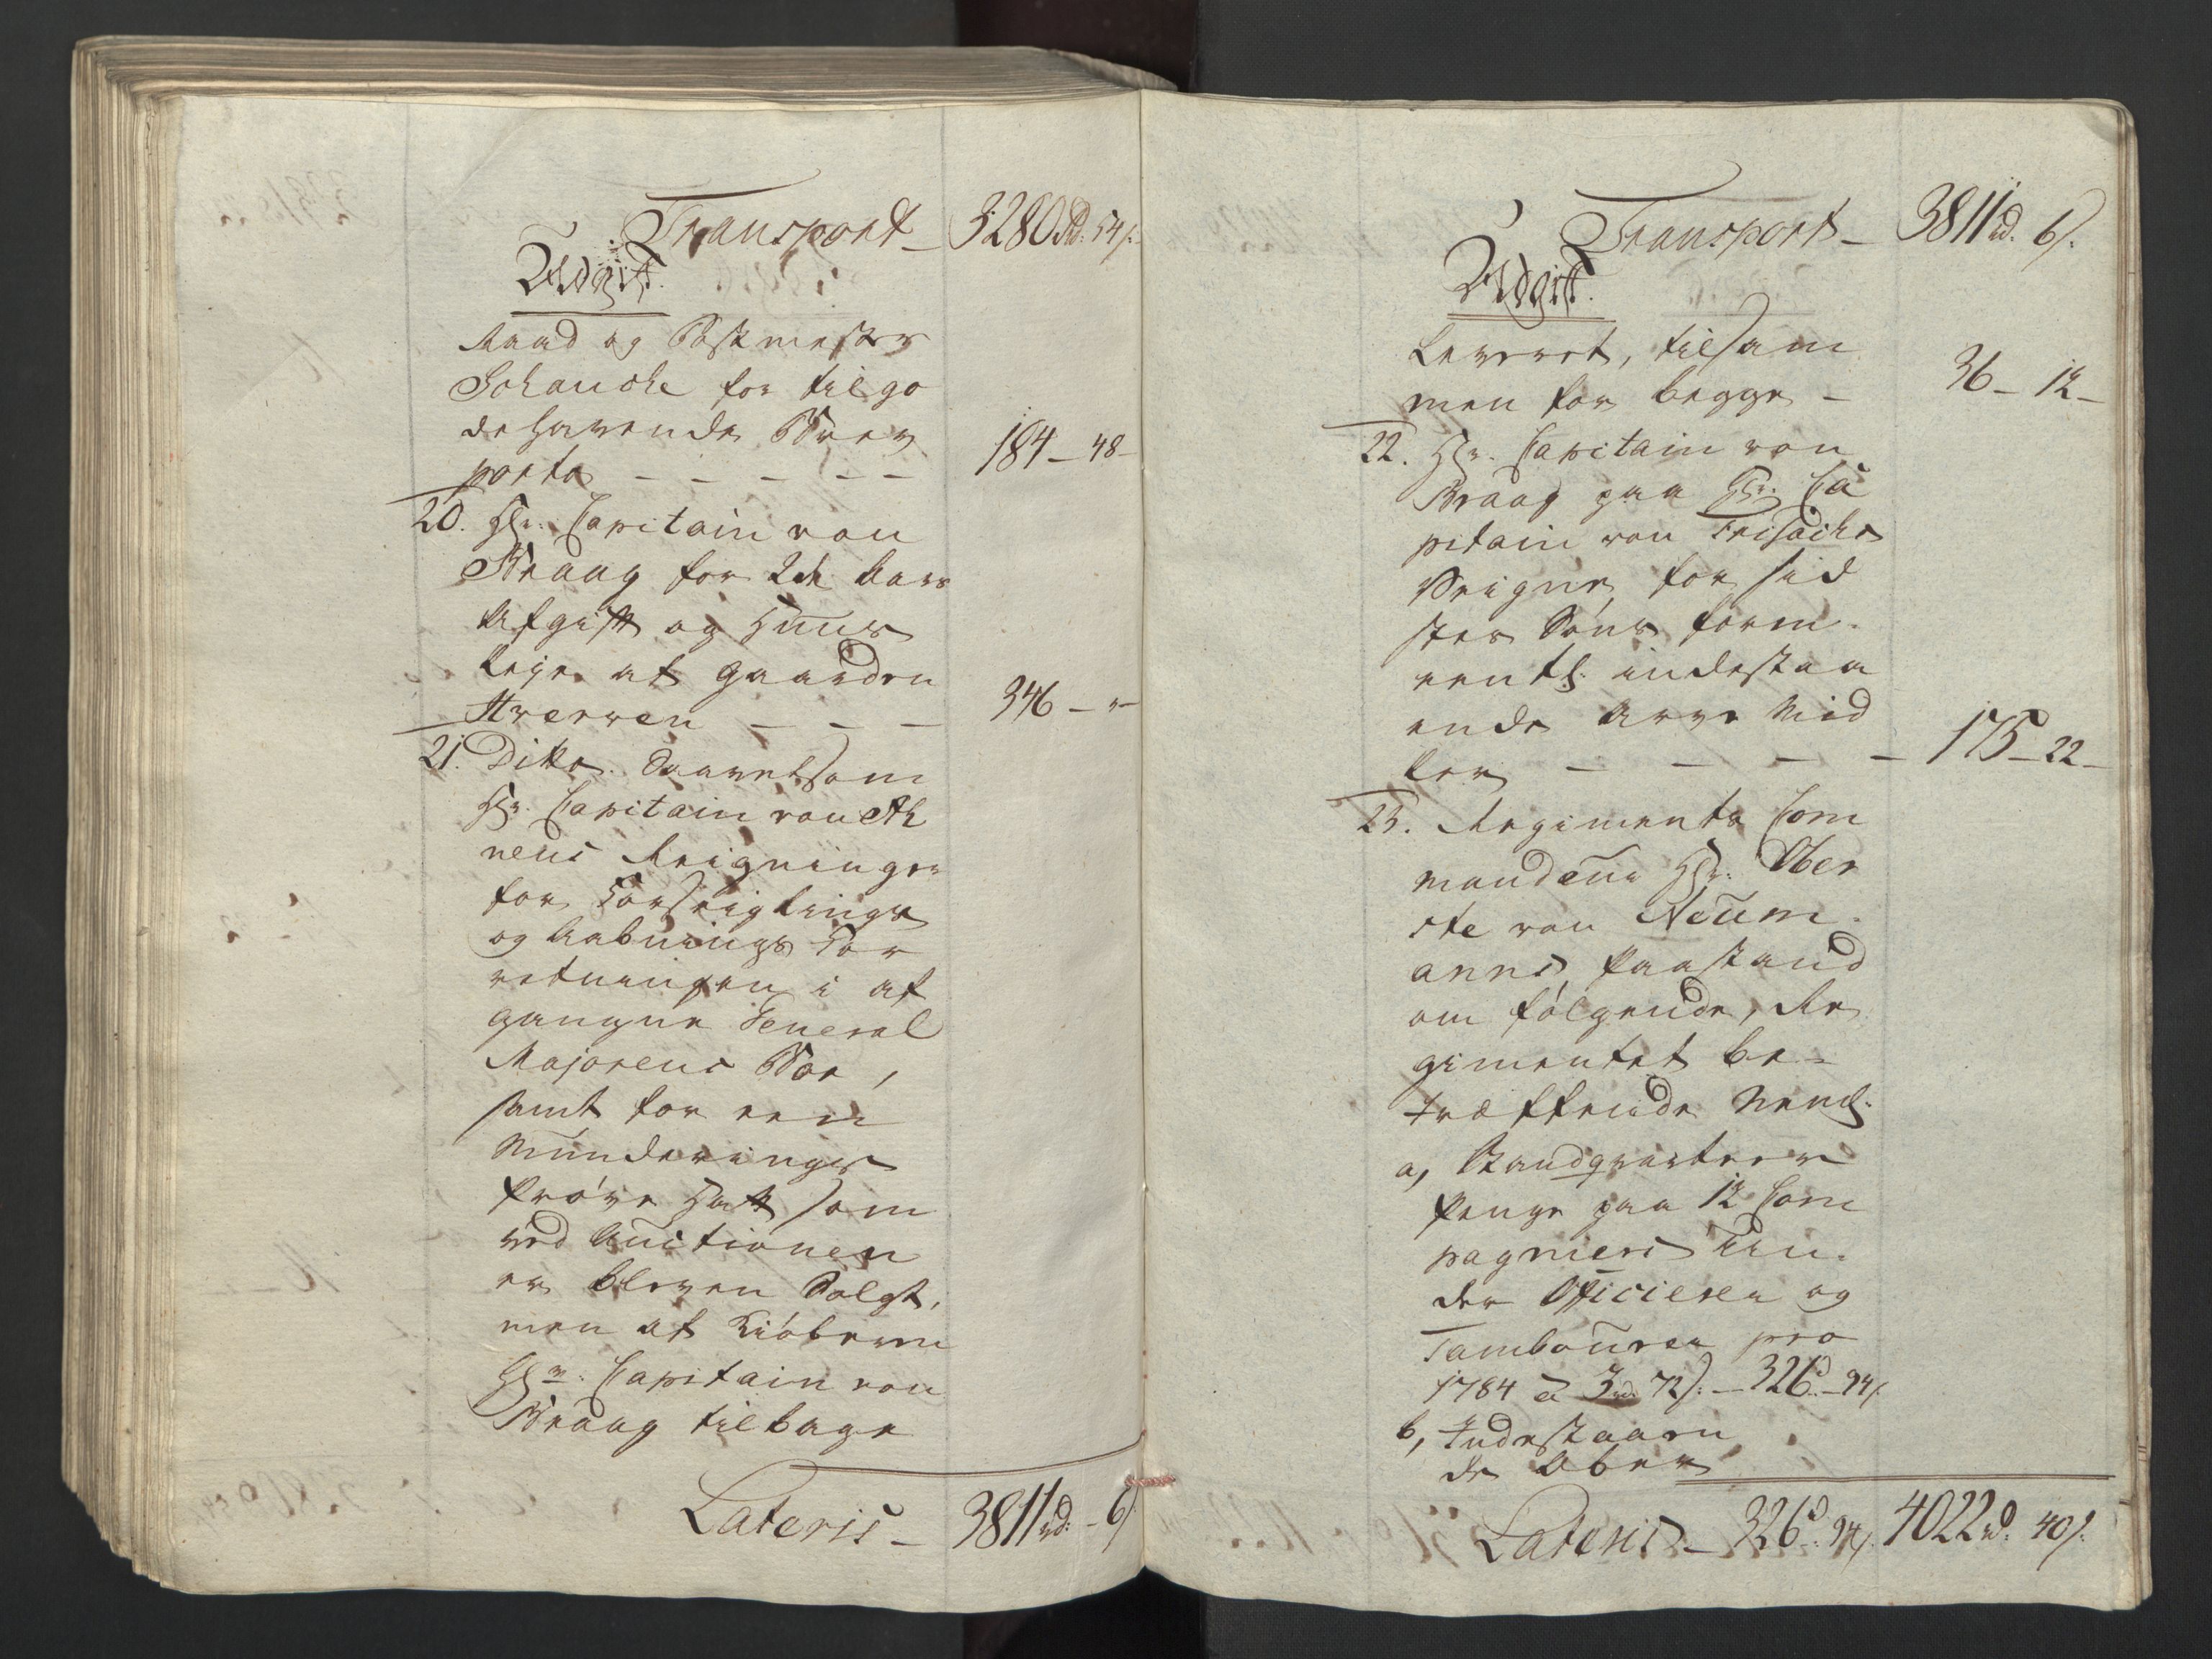 Transport _ 3280 Rd: 54 s.
Udgift.
Raad og Postmester
Schauche for tilgo
dehavende Brev
porto _ _ _ _ _ 184 _ 48 _
20. Hr. Capitain von
Kraag for 2de Aars
Afgift og Huus
leje af Gaarden
Hverven _ _ _ 346 _ " _
21. Ditto. Saavelsom
Hr. Capitain von
Reigninger
for Forseiglings
og Aabnings For
retningen i af
gangne General
Majorens Boe,
samt for een
Munderings
Prøve Hatt som
ved Auctionen
er bleven Solgt,
men af Kiøberen
Hr. Capitain von
Kraag tilbage
Lateris _ 3811 rd: _ 6 s.
Transport _ 3811 rd. 6 s.
Udgift.
Leveret, tilsam
men for begge _ 36 _ 12 _
22. Hr. Capitain von
Kraag paa Hr. Ca
pitain von
Vegne for sid
stes Søns form.
eentl. indestaa
ende Arve Mid
ler _ _ _ _ 175 _ 22 _
23. Regiments Com
mandeur Hr. Ober
ste von Neum.
anns Paastand
om følgende, Re
gimentet be-
træffende Nemlig.
a, Standqvarteer
Penge paa 12 Com
pagniers Un.
der Officierer og
Tambourer pro
1784 a 3 rd 72 s. _ 326 d. _ 94 s.
b, Indestaaen
de Aber
Lateris _ 326 d. 94 s. 4022 rd. 40 s.